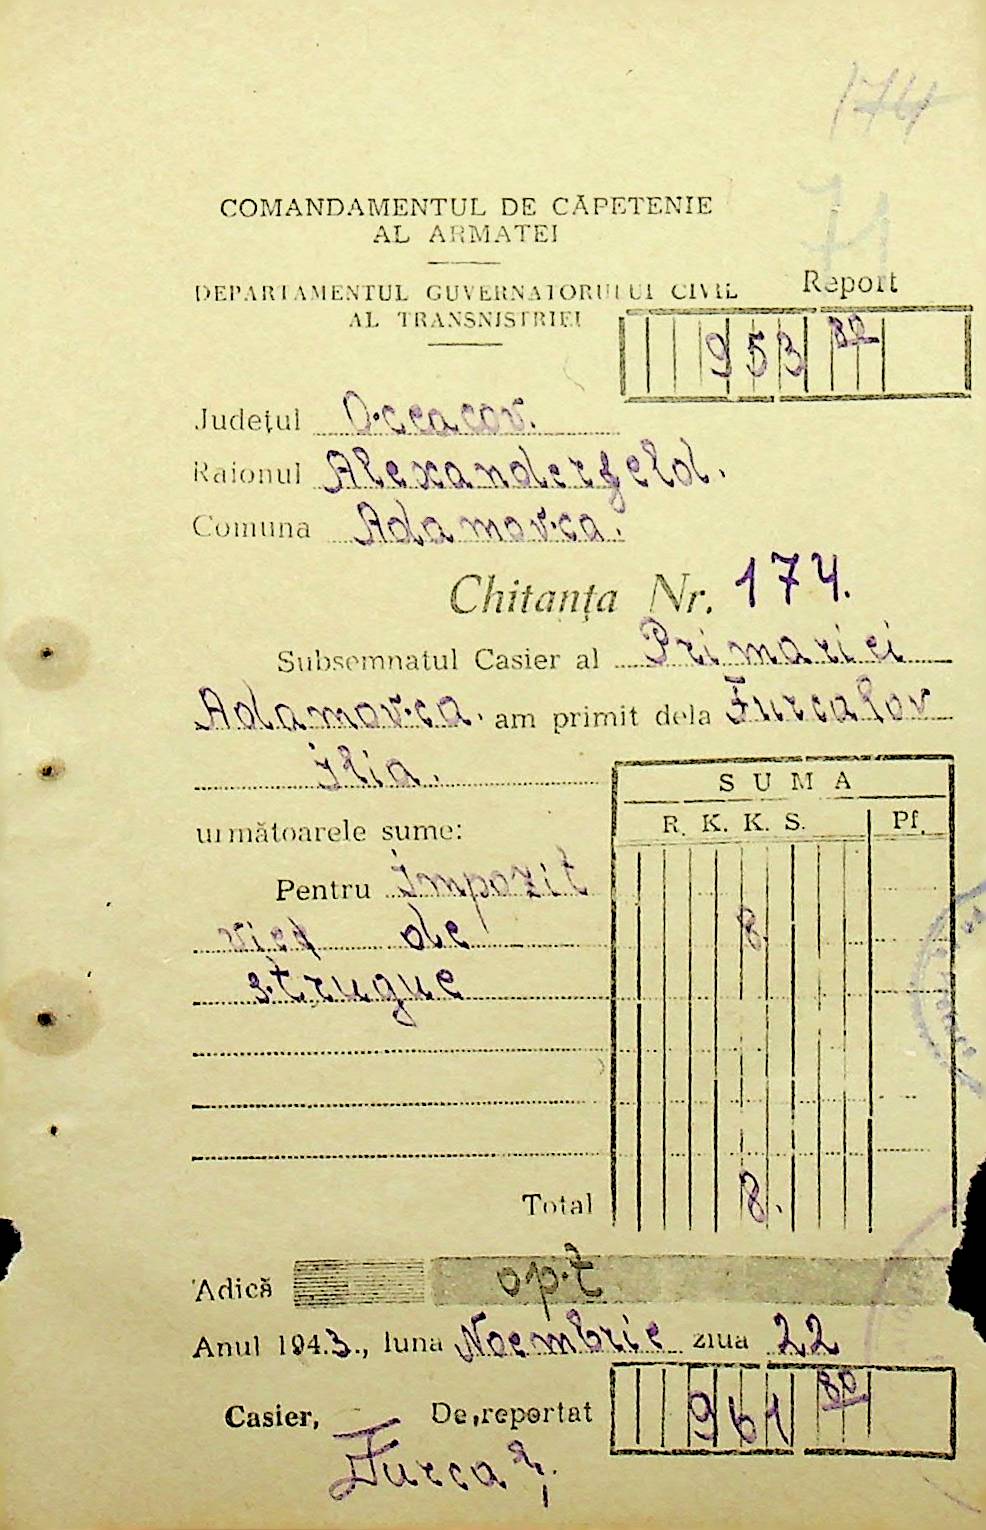 174
71
COMANDAMENTUL DE CĂPETENIE
AL ARMATEI
DEPARTAMENTUL GUVERNATORULUI CIVIL
AL TRANSNISTRIEI
Report
953 80
Județul Oceacov.
Raionul Alexanderfeld.
Comuna Adamovca.
Chitanța Nr. 174.
Subsemnatul Casier al Primariei
Adamovca. am primit dela Furcalov
Ilia.
următoarele sume:
SUMA
R. K. K. S. Pf.
Pentru impozit
vied de 8.
strugue
Total 8.
Adică opt
Anul 1943., luna Noembrie ziua 22
Casier, De reportat 961 80